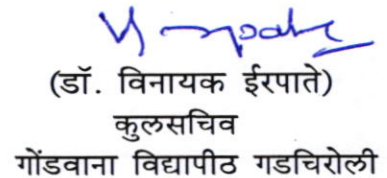 (डॉ. विनायक ईरपाते)
कुलसचिव
गोंडवाना विद्यापीठ गडचिरोली